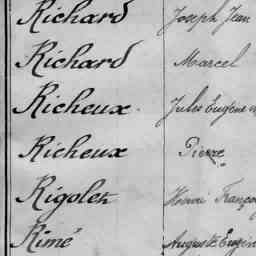 Richard Joseph Jean
Richard Marcel
Richeux Jules Eugène
Richeux Pierre
Rigolet Henri François
Rimé Auguste Eugèn